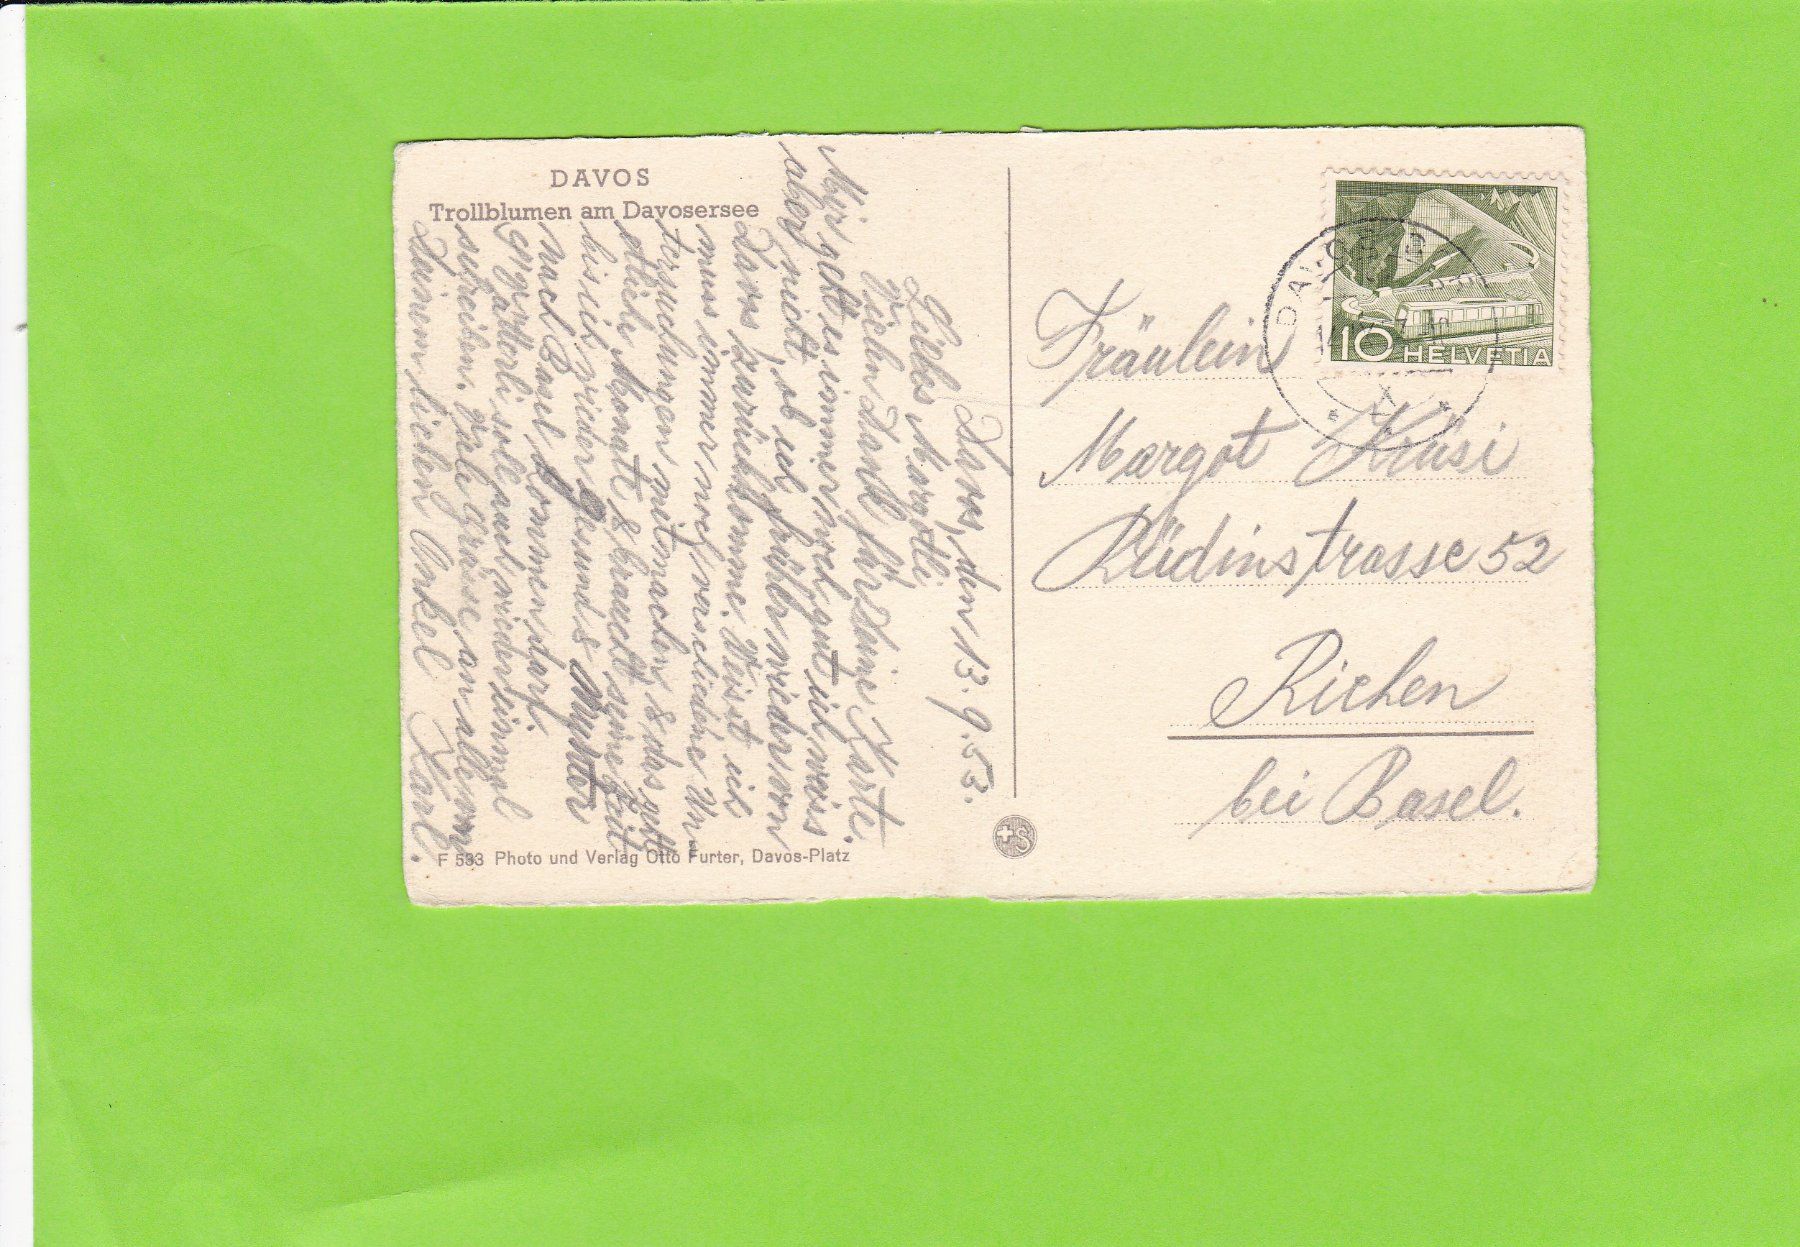 DAVOS
Trollblumen am Davosersee
Davos, den 13. 9. 53.
Liebes Margotli
Vielen Dank für Deine Karte.
Mir geht es immer viel gut ich weis
aber nicht, ob ich früher wieder von
Davos zurückkomme. Weisst ich
muss immer noch verschiedene Un-
tersuchungen mitmachen & das geht
etliche Monate & braucht seine Zeit
bis ich wieder gesund & munter
nach Basel kommen darf.
s'grossätterli soll auch wieder einmal
schreiben. Viele Grüsse an alle von
Deinem lieben Onkel Karl.
F 533 Photo und Verlag Otto Furter, Davos-Platz
S
DAVOS
10 HELVETIA
Fräulein
Margot Krüsi
Rüdinstrasse 52
Riehen
bei Basel.